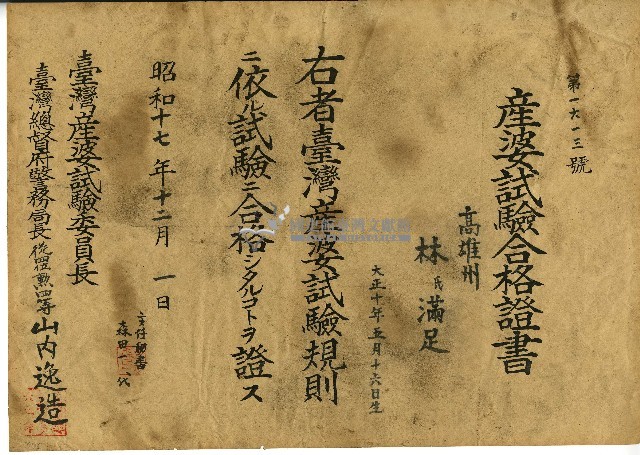 第一六一三號
産婆試驗合格證書
高雄州
林氏滿足
大正十年五月十六日生
右者臺灣産婆試驗規則
ニ依ル試驗ニ合格シタルコトヲ證ス
昭和十七年十二月一日
臺灣産婆試驗委員長
臺灣總督府警務局長從四位勲四等山内逸造
主任
森田
代